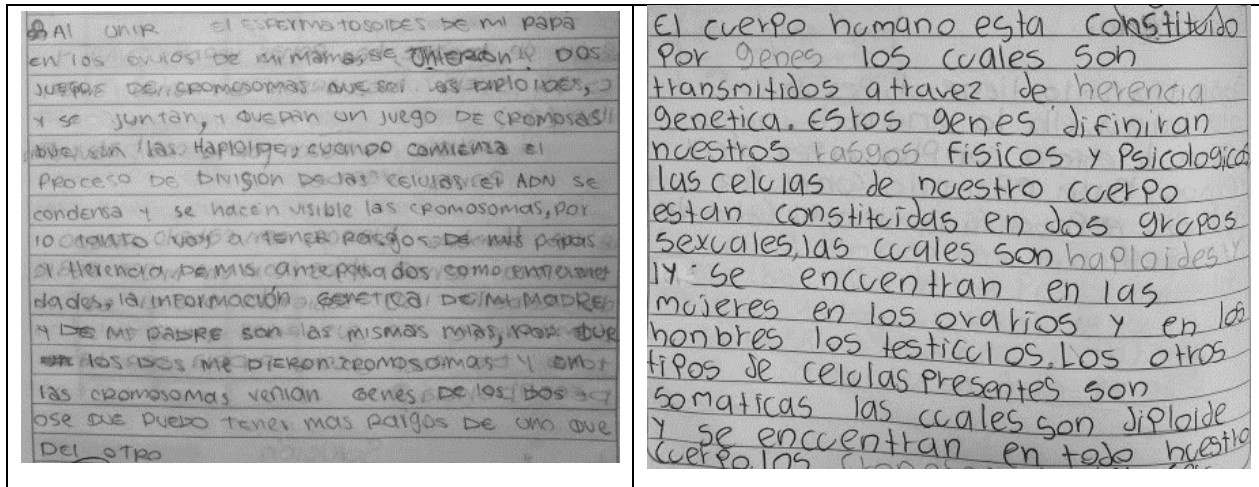 Al unir el espermatosoides de mi papa
en los ovulos de mi mama, se unieron DOS
juegos de cromosomas que sei las Diploides,
y se juntan, y quedan un juego De cromosas
que son las Haploide, cuando comienza el
proceso de Division de las celulas el ADN se
condensa y se hacen visible las cromosomas, por
lo tanto voy a tener rasgos De mis papas
y Herencia De mis antepasados como enfermer
dades, la información genetica De mi MADRE
y De mi PADRE son las mismas mias, por que
los Dos me Dieron cromosomas y en
las cromosomas venian genes De los Dos
ose que puedo tener mas rasgos De uno que
Del otro
El cuerpo humano esta constituido
Por genes los cuales son
transmitidos atravez de herencia
genetica. Estos genes difiniran
nuestros rasgos Fisicos y Psicologicos
las celulas de nuestro cuerpo
estan constituidas en dos grupos
sexuales, las cuales son haploides
y se encuentran en las
mujeres en los ovarios y en los
honbres los testiculos. Los otros
tipos de celulas presentes son
somaticas las cuales son diploide
y se encuentran en todo nuestro
cuerpo. los